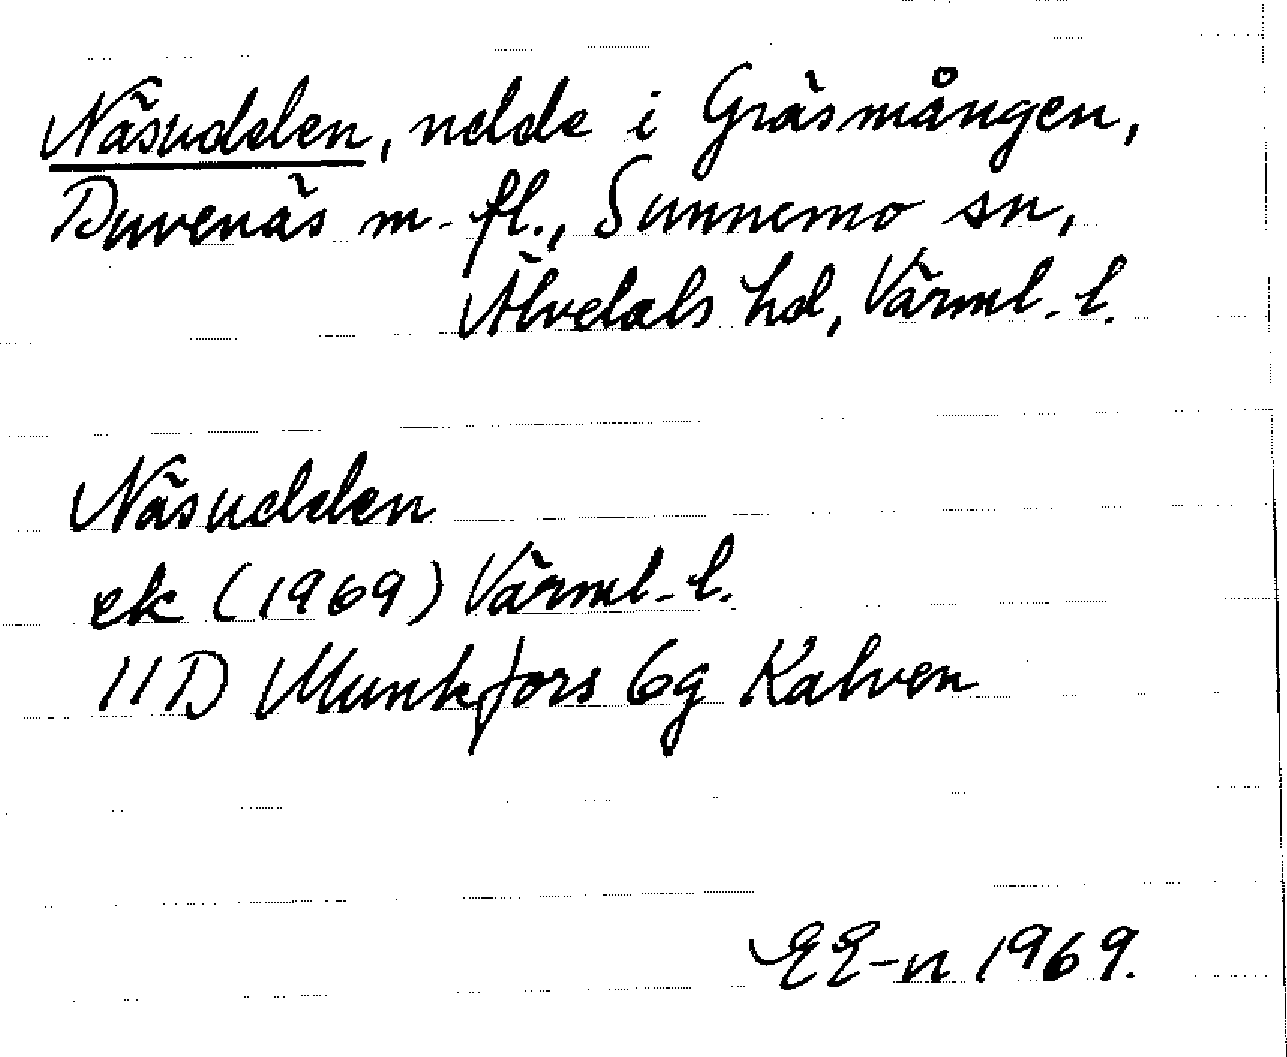 Näsudden, udde i Gräsmången,
Duvenäs m. fl., Sunnemo sn,
Älvdals hd, Värml. l.
Näsudden
ek (1969) Värml. l.
11D Munkfors 6g Kalven
EE-n 1969.